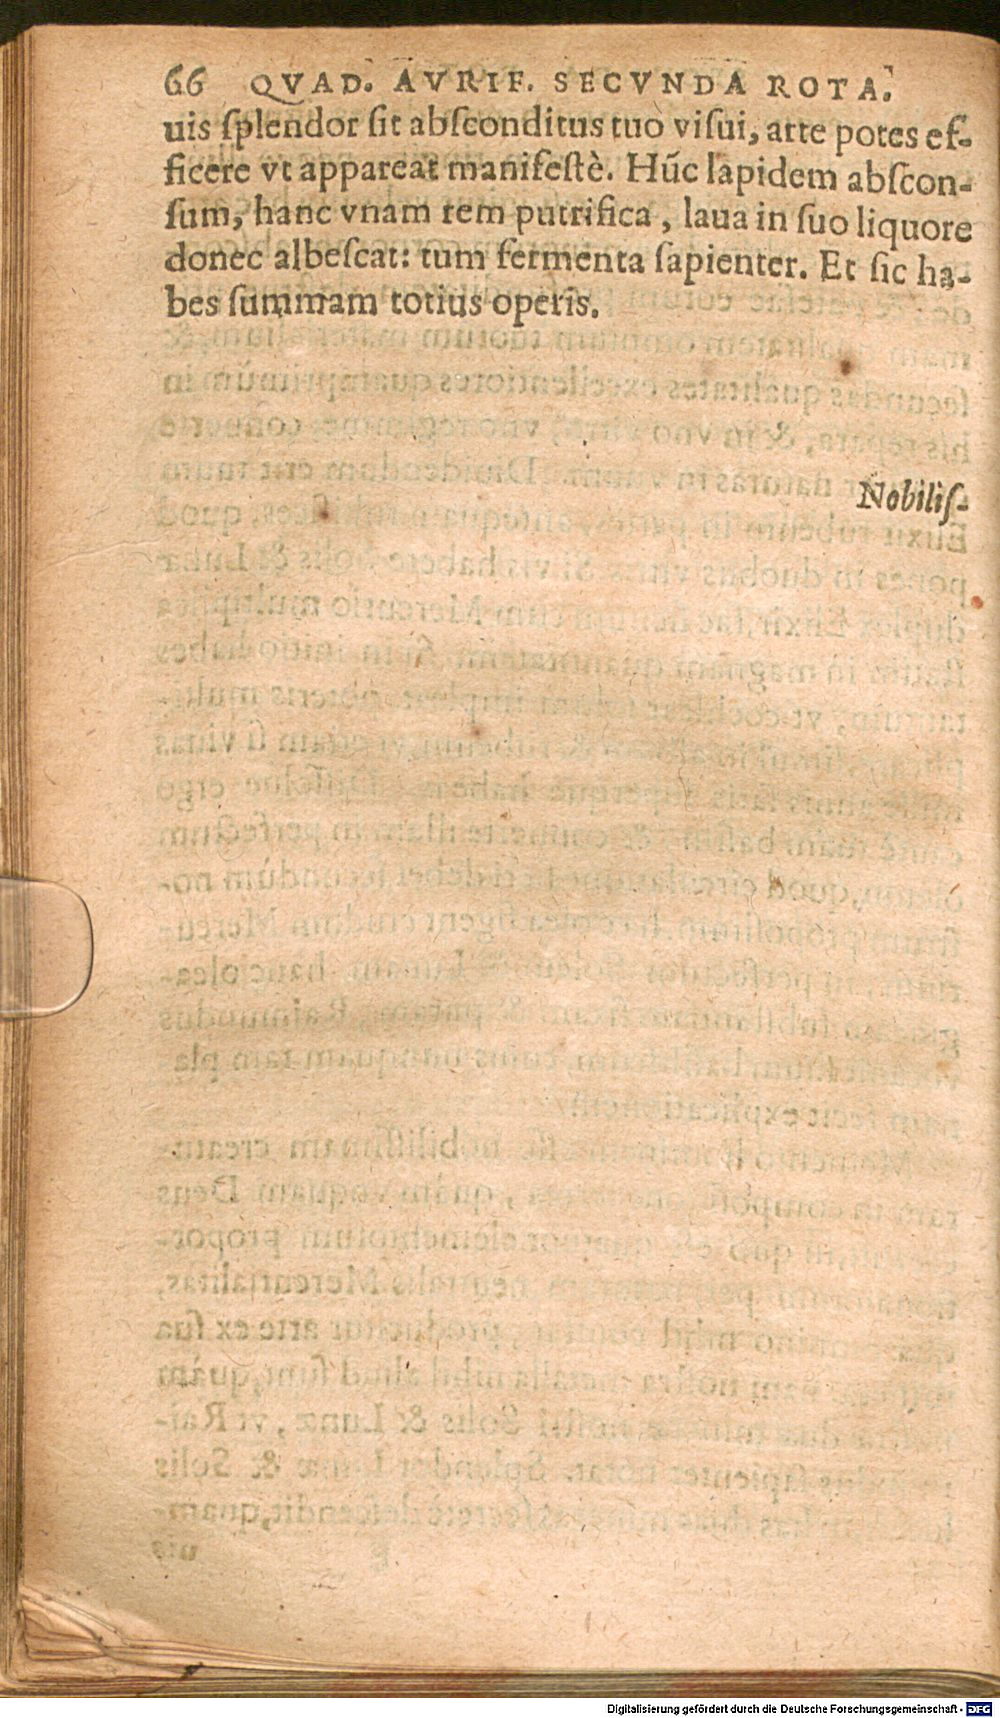 66 QVAD. AVRIF. SECVNDA ROTA.
uis ſplendor ſit abſconditus tuo viſui, arte potes ef-
ficere vt appareat manifeſtè. Hũc lapidem abſcon-
ſum, hanc vnam rem putrifica, laua in ſuo liquore
donec albeſcat: tum fermenta ſapienter. Et ſic ha-
bes ſummam totius operis.
Nobiliſ-
Digitalisierung gefördert durch die Deutsche Forschungsgemeinschaft - DFG